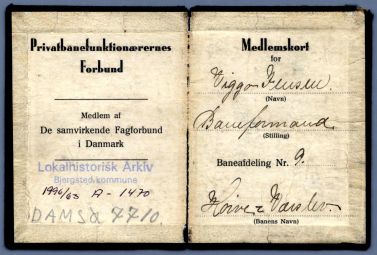 Privatbanefunktionærernes
Forbund
Medlem af
De samvirkende Fagforbund
i Danmark
Lokalhistorisk Arkiv
Bjergsted kommune
1996/63 A-1470
DAMSA 7710
Medlemskort
for
Viggo Jensen
(Navn)
Baneformand
(Stilling)
Baneafdeling Nr. 9.
Høve - Værslev
(Banens Navn)